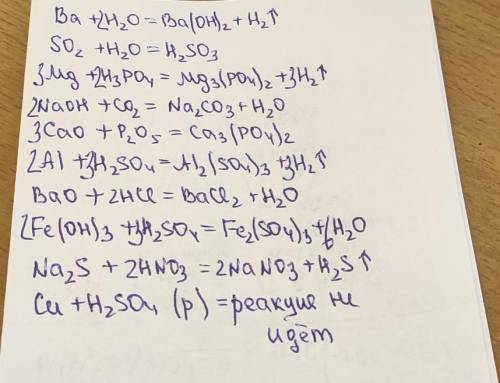 Ba + 2H₂O = Ba(OH)₂ + H₂↑
SO₂ + H₂O = H₂SO₃
3Mg + 2H₃PO₄ = Mg₃(PO₄)₂ + 3H₂↑
2NaOH + CO₂ = Na₂CO₃ + H₂O
3CaO + P₂O₅ = Ca₃(PO₄)₂
2Al + 3H₂SO₄ = Al₂(SO₄)₃ + 3H₂↑
BaO + 2HCl = BaCl₂ + H₂O
2Fe(OH)₃ + 3H₂SO₄ = Fe₂(SO₄)₃ + 6H₂O
Na₂S + 2HNO₃ = 2NaNO₃ + H₂S↑
Cu + H₂SO₄ (р) = реакция не
идёт